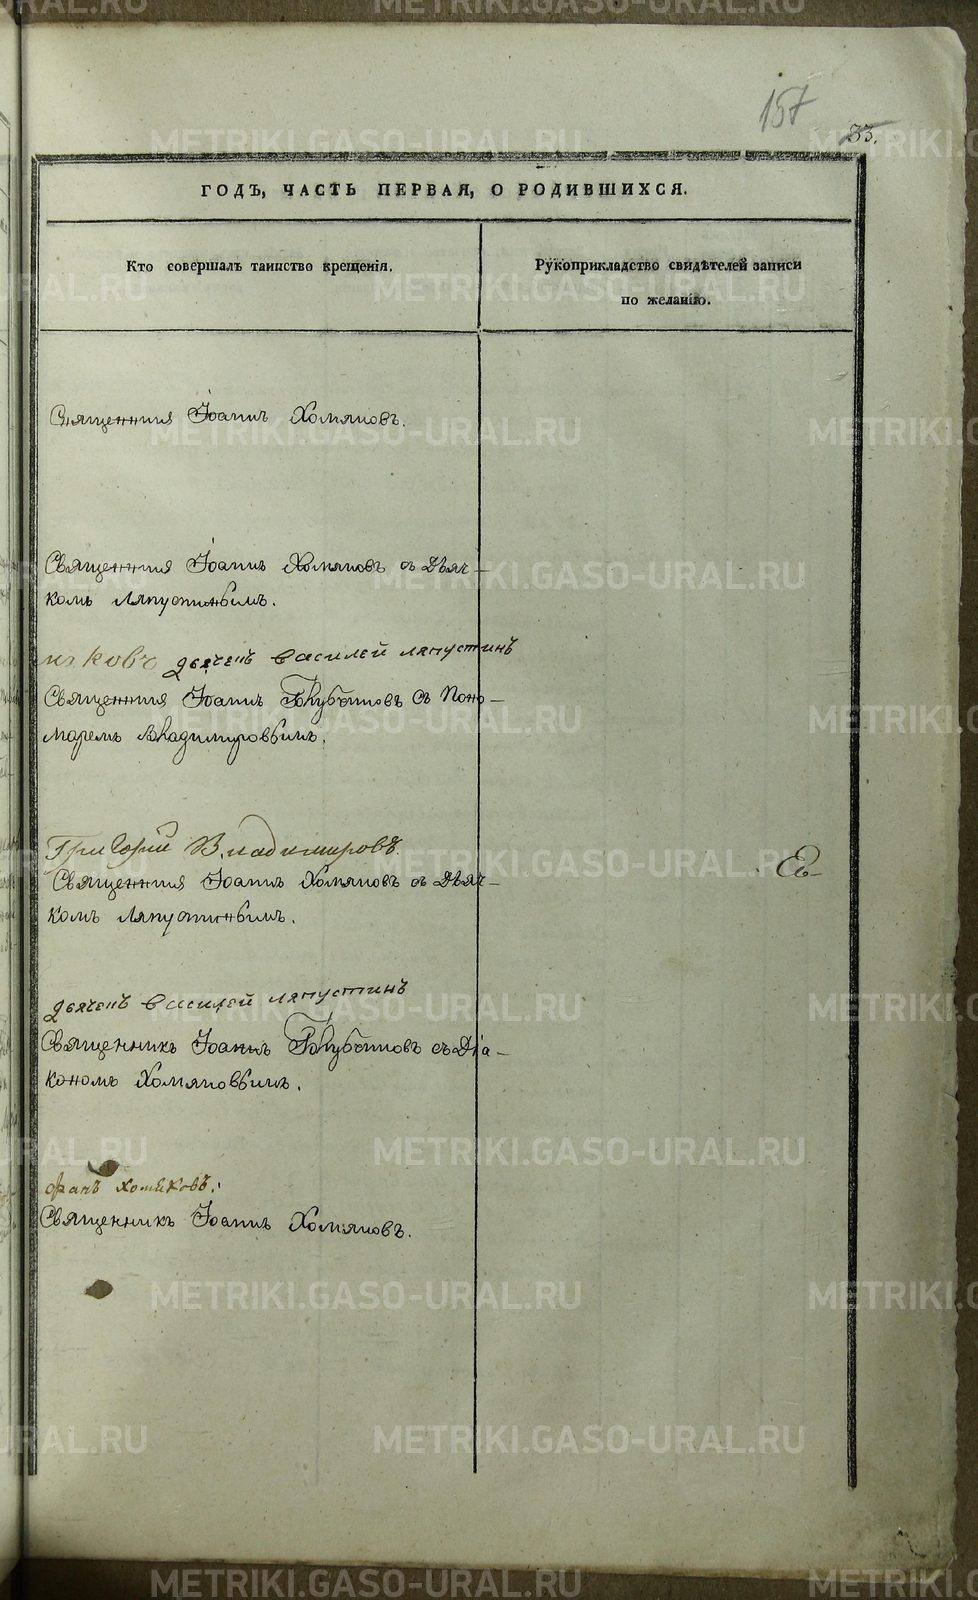 157
33.
ГОДЪ, ЧАСТЬ ПЕРВАЯ, О РОДИВШИХСЯ.
Кто совершалъ таинство крещенія.
Рукоприкладство свидѣтелей записи
по желанію.
Священникъ Іоаннъ Хомяковъ.
Священникъ Іоаннъ Хомяковъ съ Дьяч-
комъ Ляпустинымъ.
дьячекъ Василей Ляпустинъ
Священникъ Іоаннъ съ Поно-
маремъ Владимировымъ.
Григорій Владимировъ.
Священникъ Іоаннъ Хомяковъ съ Дьяч-
комъ Ляпустинымъ.
Ев-
дьячекъ Василей Ляпустинъ
Священникъ Іоаннъ съ Діа-
кономъ Хомяковымъ.
Хомяковъ.
Священникъ Іоаннъ Хомяковъ.
METRIKI.GASO-URAL.RU